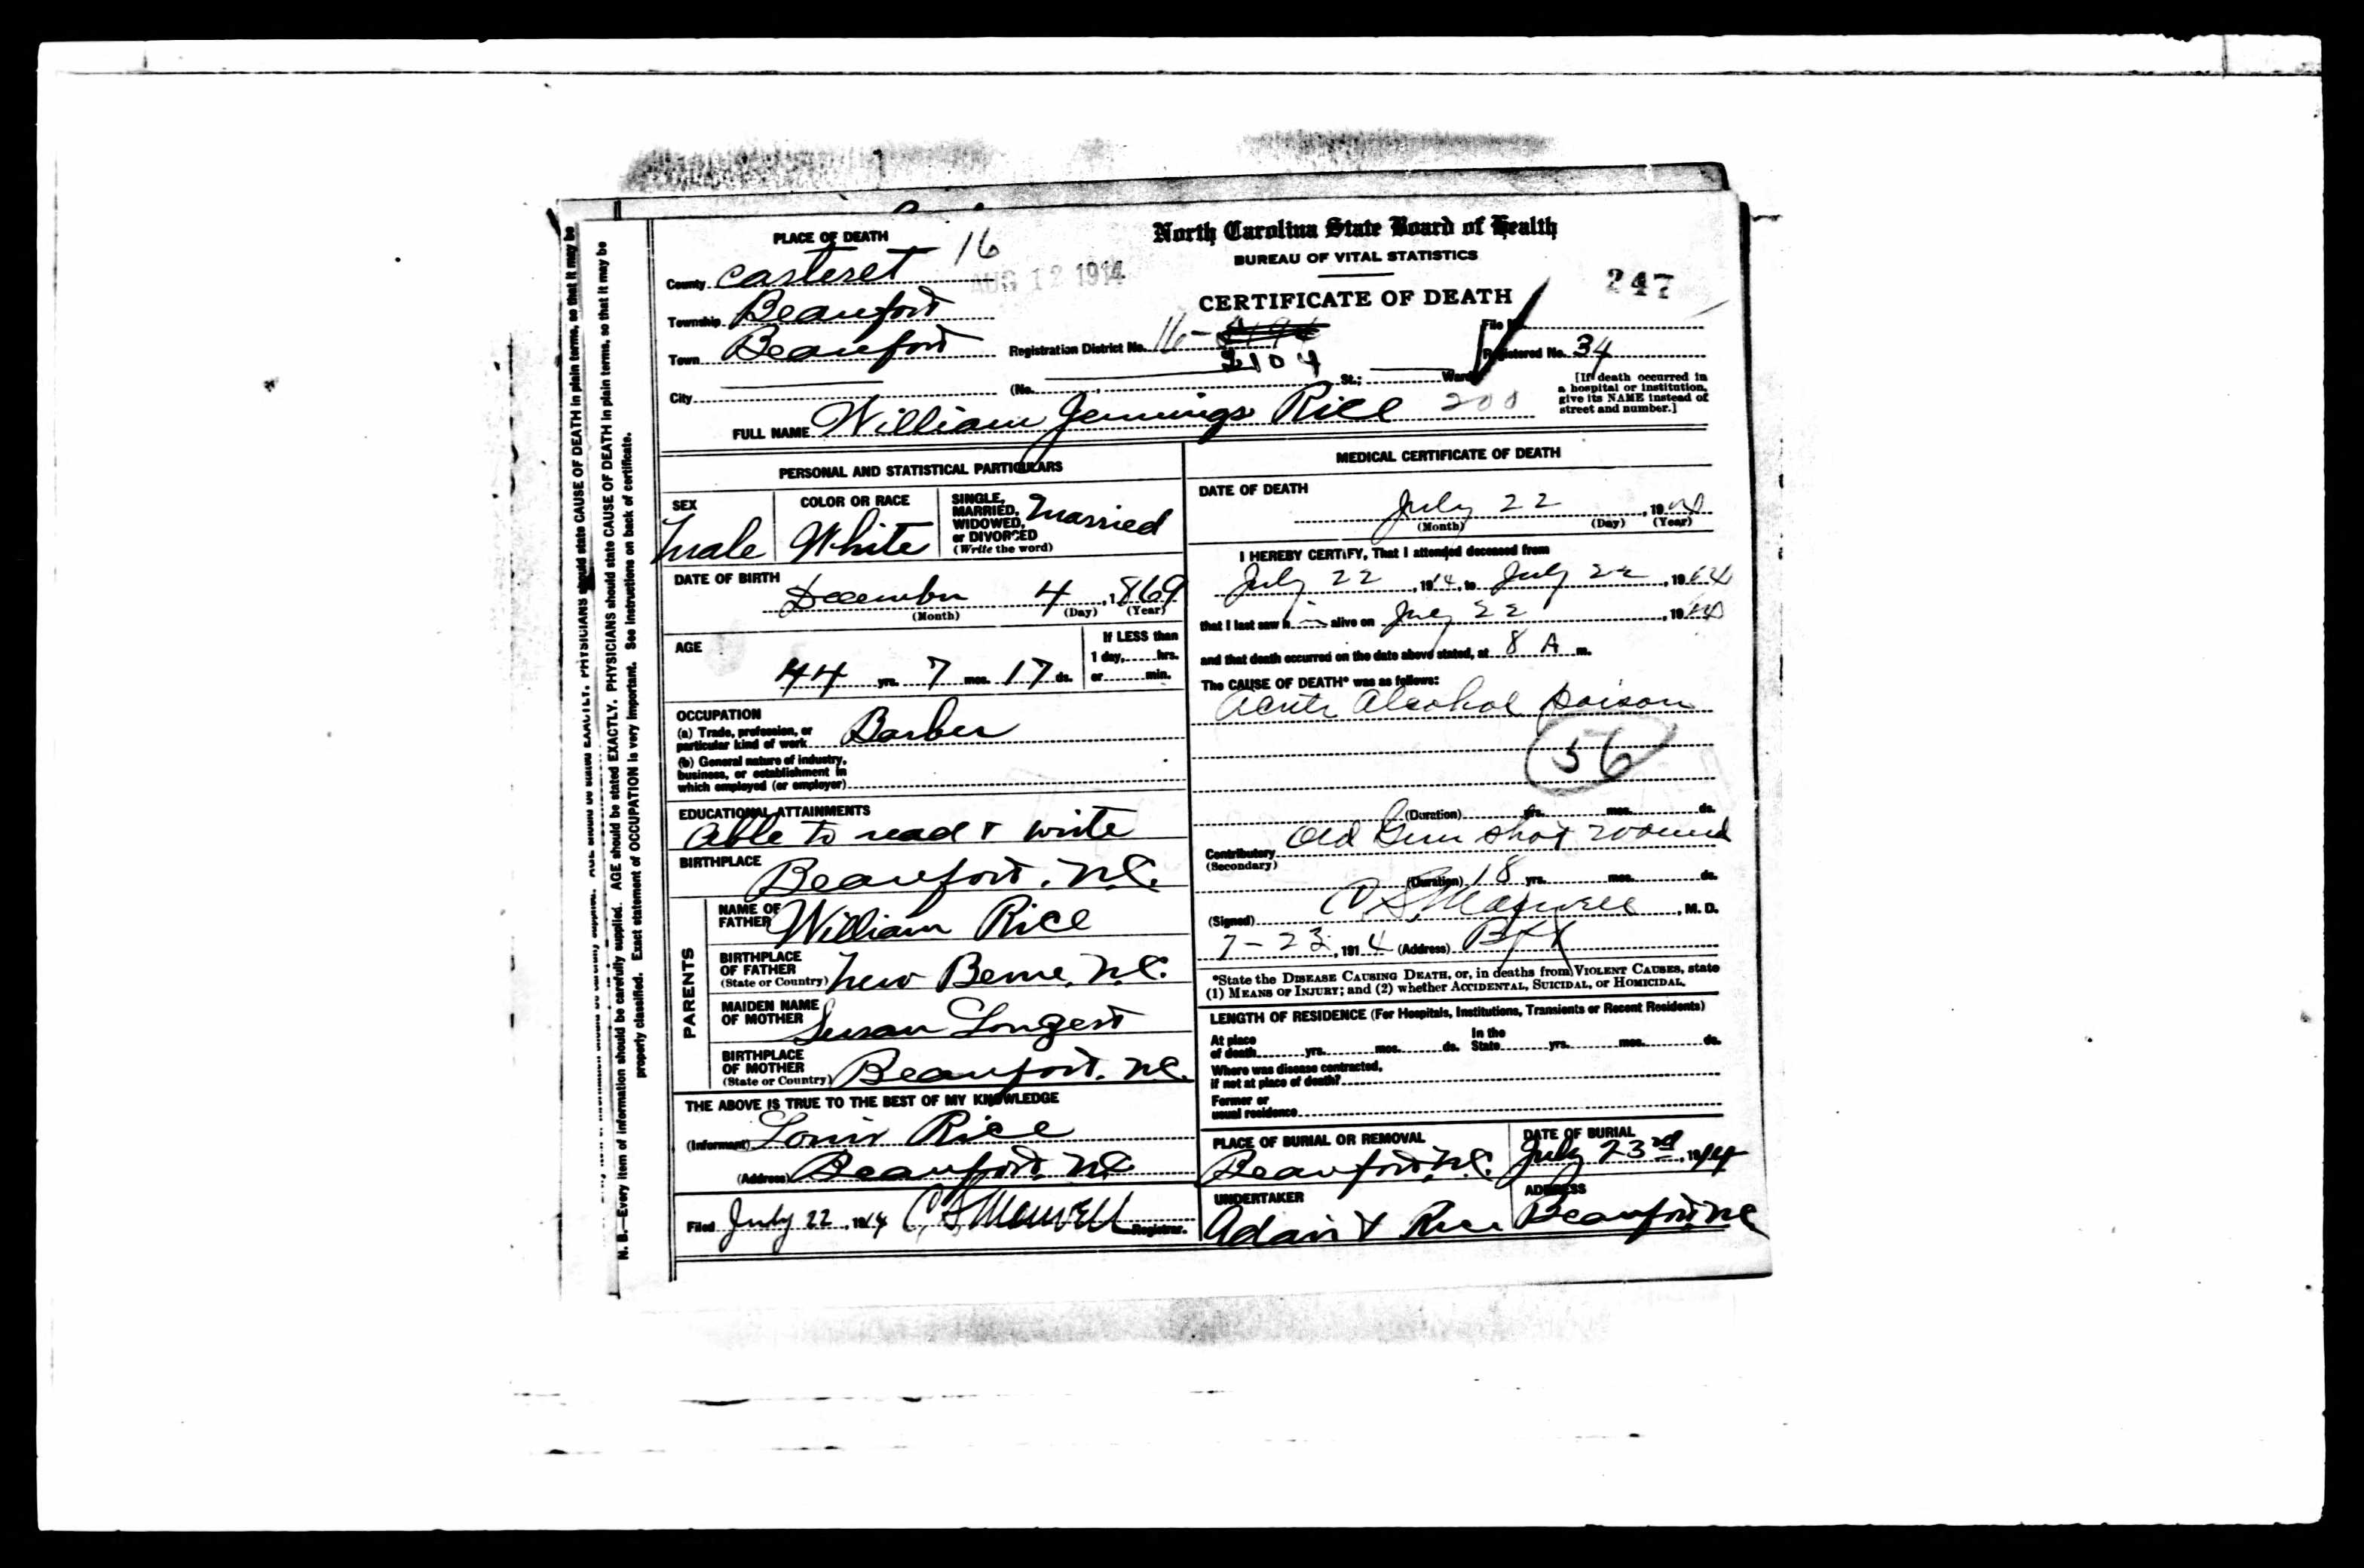 PLACE OF DEATH
16
County Carteret
AUG 12 1914
Township Beaufort
Town Beaufort
City
North Carolina State Board of Health
BUREAU OF VITAL STATISTICS
CERTIFICATE OF DEATH
247
Registration District No. 16-
2104
File No.
Registered No. 34
(No. , St.; Ward)
[If death occurred in
a hospital or institution,
give its NAME instead of
street and number.]
FULL NAME William Jennings Rice 200
PERSONAL AND STATISTICAL PARTICULARS
SEX
Male
COLOR OR RACE
White
SINGLE,
MARRIED,
WIDOWED,
or DIVORCED
(Write the word)
Married
DATE OF BIRTH
December 4, 1869
(Month) (Day) (Year)
AGE
44 yrs. 7 mos. 17 ds.
If LESS than
1 day, hrs.
or min.
OCCUPATION
(a) Trade, profession, or
particular kind of work Barber
(b) General nature of industry,
business, or establishment in
which employed (or employer)
EDUCATIONAL ATTAINMENTS
Able to read & write
BIRTHPLACE
Beaufort, N.C.
PARENTS
NAME OF
FATHER William Rice
BIRTHPLACE
OF FATHER
(State or Country) New Berne, N.C.
MAIDEN NAME
OF MOTHER Susan Longest
BIRTHPLACE
OF MOTHER
(State or Country) Beaufort, N.C.
THE ABOVE IS TRUE TO THE BEST OF MY KNOWLEDGE
(Informant) Louis Rice
(Address) Beaufort, N.C.
Filed July 22, 1914 C S Maxwell Registrar.
MEDICAL CERTIFICATE OF DEATH
DATE OF DEATH
July 22, 1914
(Month) (Day) (Year)
I HEREBY CERTIFY, That I attended deceased from
July 22, 1914, to July 22, 1914
that I last saw h alive on July 22, 1914
and that death occurred on the date above stated, at 8 A m.
The CAUSE OF DEATH* was as follows:
Acute Alcohol Poison
56
(Duration) yrs. mos. ds.
Contributory Old Gun shot wound
(Secondary)
(Duration) 18 yrs. mos. ds.
(Signed) C. S. Maxwell, M. D.
7-23, 1914 (Address) Bft
*State the DISEASE CAUSING DEATH, or, in deaths from VIOLENT CAUSES, state
(1) MEANS OF INJURY; and (2) whether ACCIDENTAL, SUICIDAL, or HOMICIDAL.
LENGTH OF RESIDENCE (For Hospitals, Institutions, Transients or Recent Residents)
At place
of death yrs. mos. ds.
In the
State yrs. mos. ds.
Where was disease contracted,
if not at place of death?
Former or
usual residence
PLACE OF BURIAL OR REMOVAL
Beaufort, N.C.
DATE OF BURIAL
July 23rd, 1914
UNDERTAKER
Adair & Rice
ADDRESS
Beaufort, N.C.
should state CAUSE OF DEATH in plain terms, so that it may be
N. B.—Every item of information should be carefully supplied. AGE should be stated EXACTLY. PHYSICIANS should state CAUSE OF DEATH in plain terms, so that it may be
properly classified. Exact statement of OCCUPATION is very important. See instructions on back of certificate.